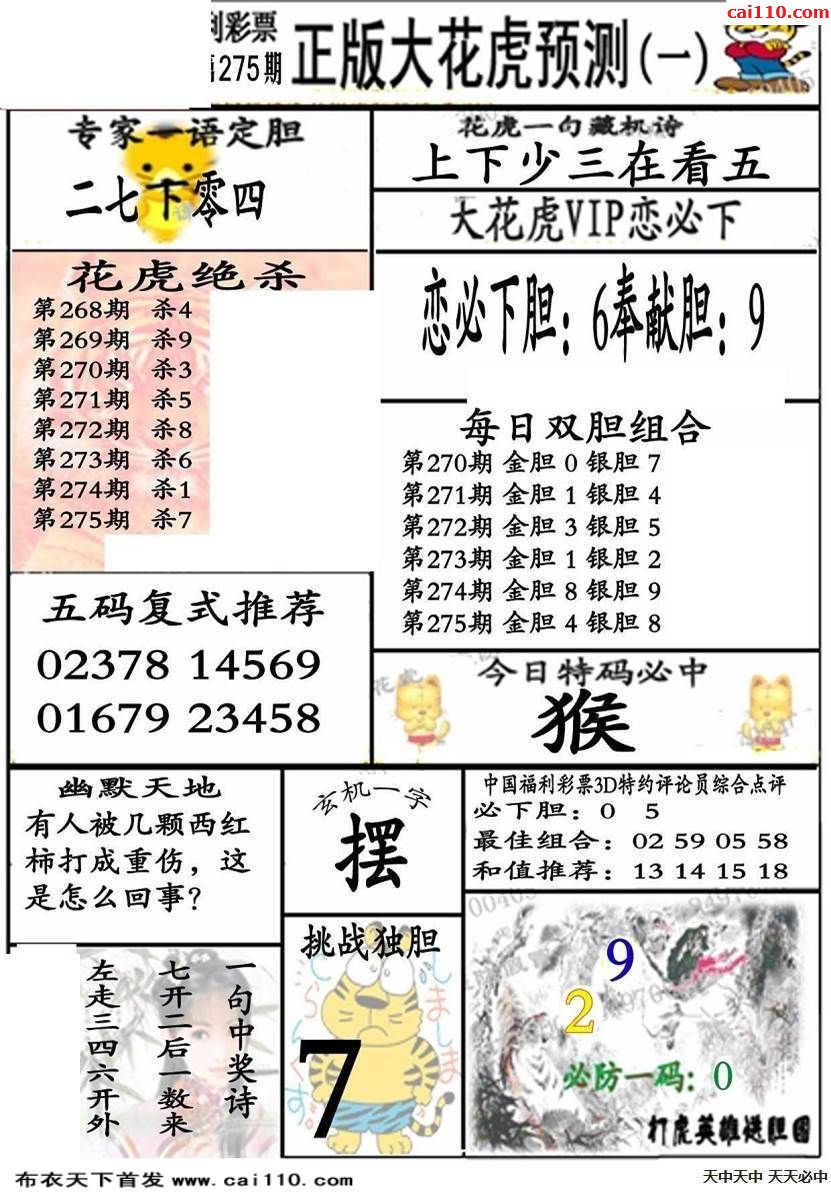 cai110.com
利彩票
第275期
正版大花虎预测(一)
专家一语定胆
二七下零四
花虎一句藏机诗
上下少三在看五
大花虎VIP恋必下
恋必下胆：6奉献胆：9
花虎绝杀
第268期 杀4
第269期 杀9
第270期 杀3
第271期 杀5
第272期 杀8
第273期 杀6
第274期 杀1
第275期 杀7
每日双胆组合
第270期 金胆 0 银胆 7
第271期 金胆 1 银胆 4
第272期 金胆 3 银胆 5
第273期 金胆 1 银胆 2
第274期 金胆 8 银胆 9
第275期 金胆 4 银胆 8
五码复式推荐
02378 14569
01679 23458
今日特码必中
猴
幽默天地
有人被几颗西红
柿打成重伤，这
是怎么回事？
玄机一字
摆
中国福利彩票3D特约评论员综合点评
必下胆：0 5
最佳组合：02 59 05 58
和值推荐：13 14 15 18
一句中奖诗
七开二后一数来
左走三四六开外
挑战独胆
7
9
2
必防一码：0
打虎英雄送胆图
布衣天下首发 www.cai110.com
天中天中 天天必中